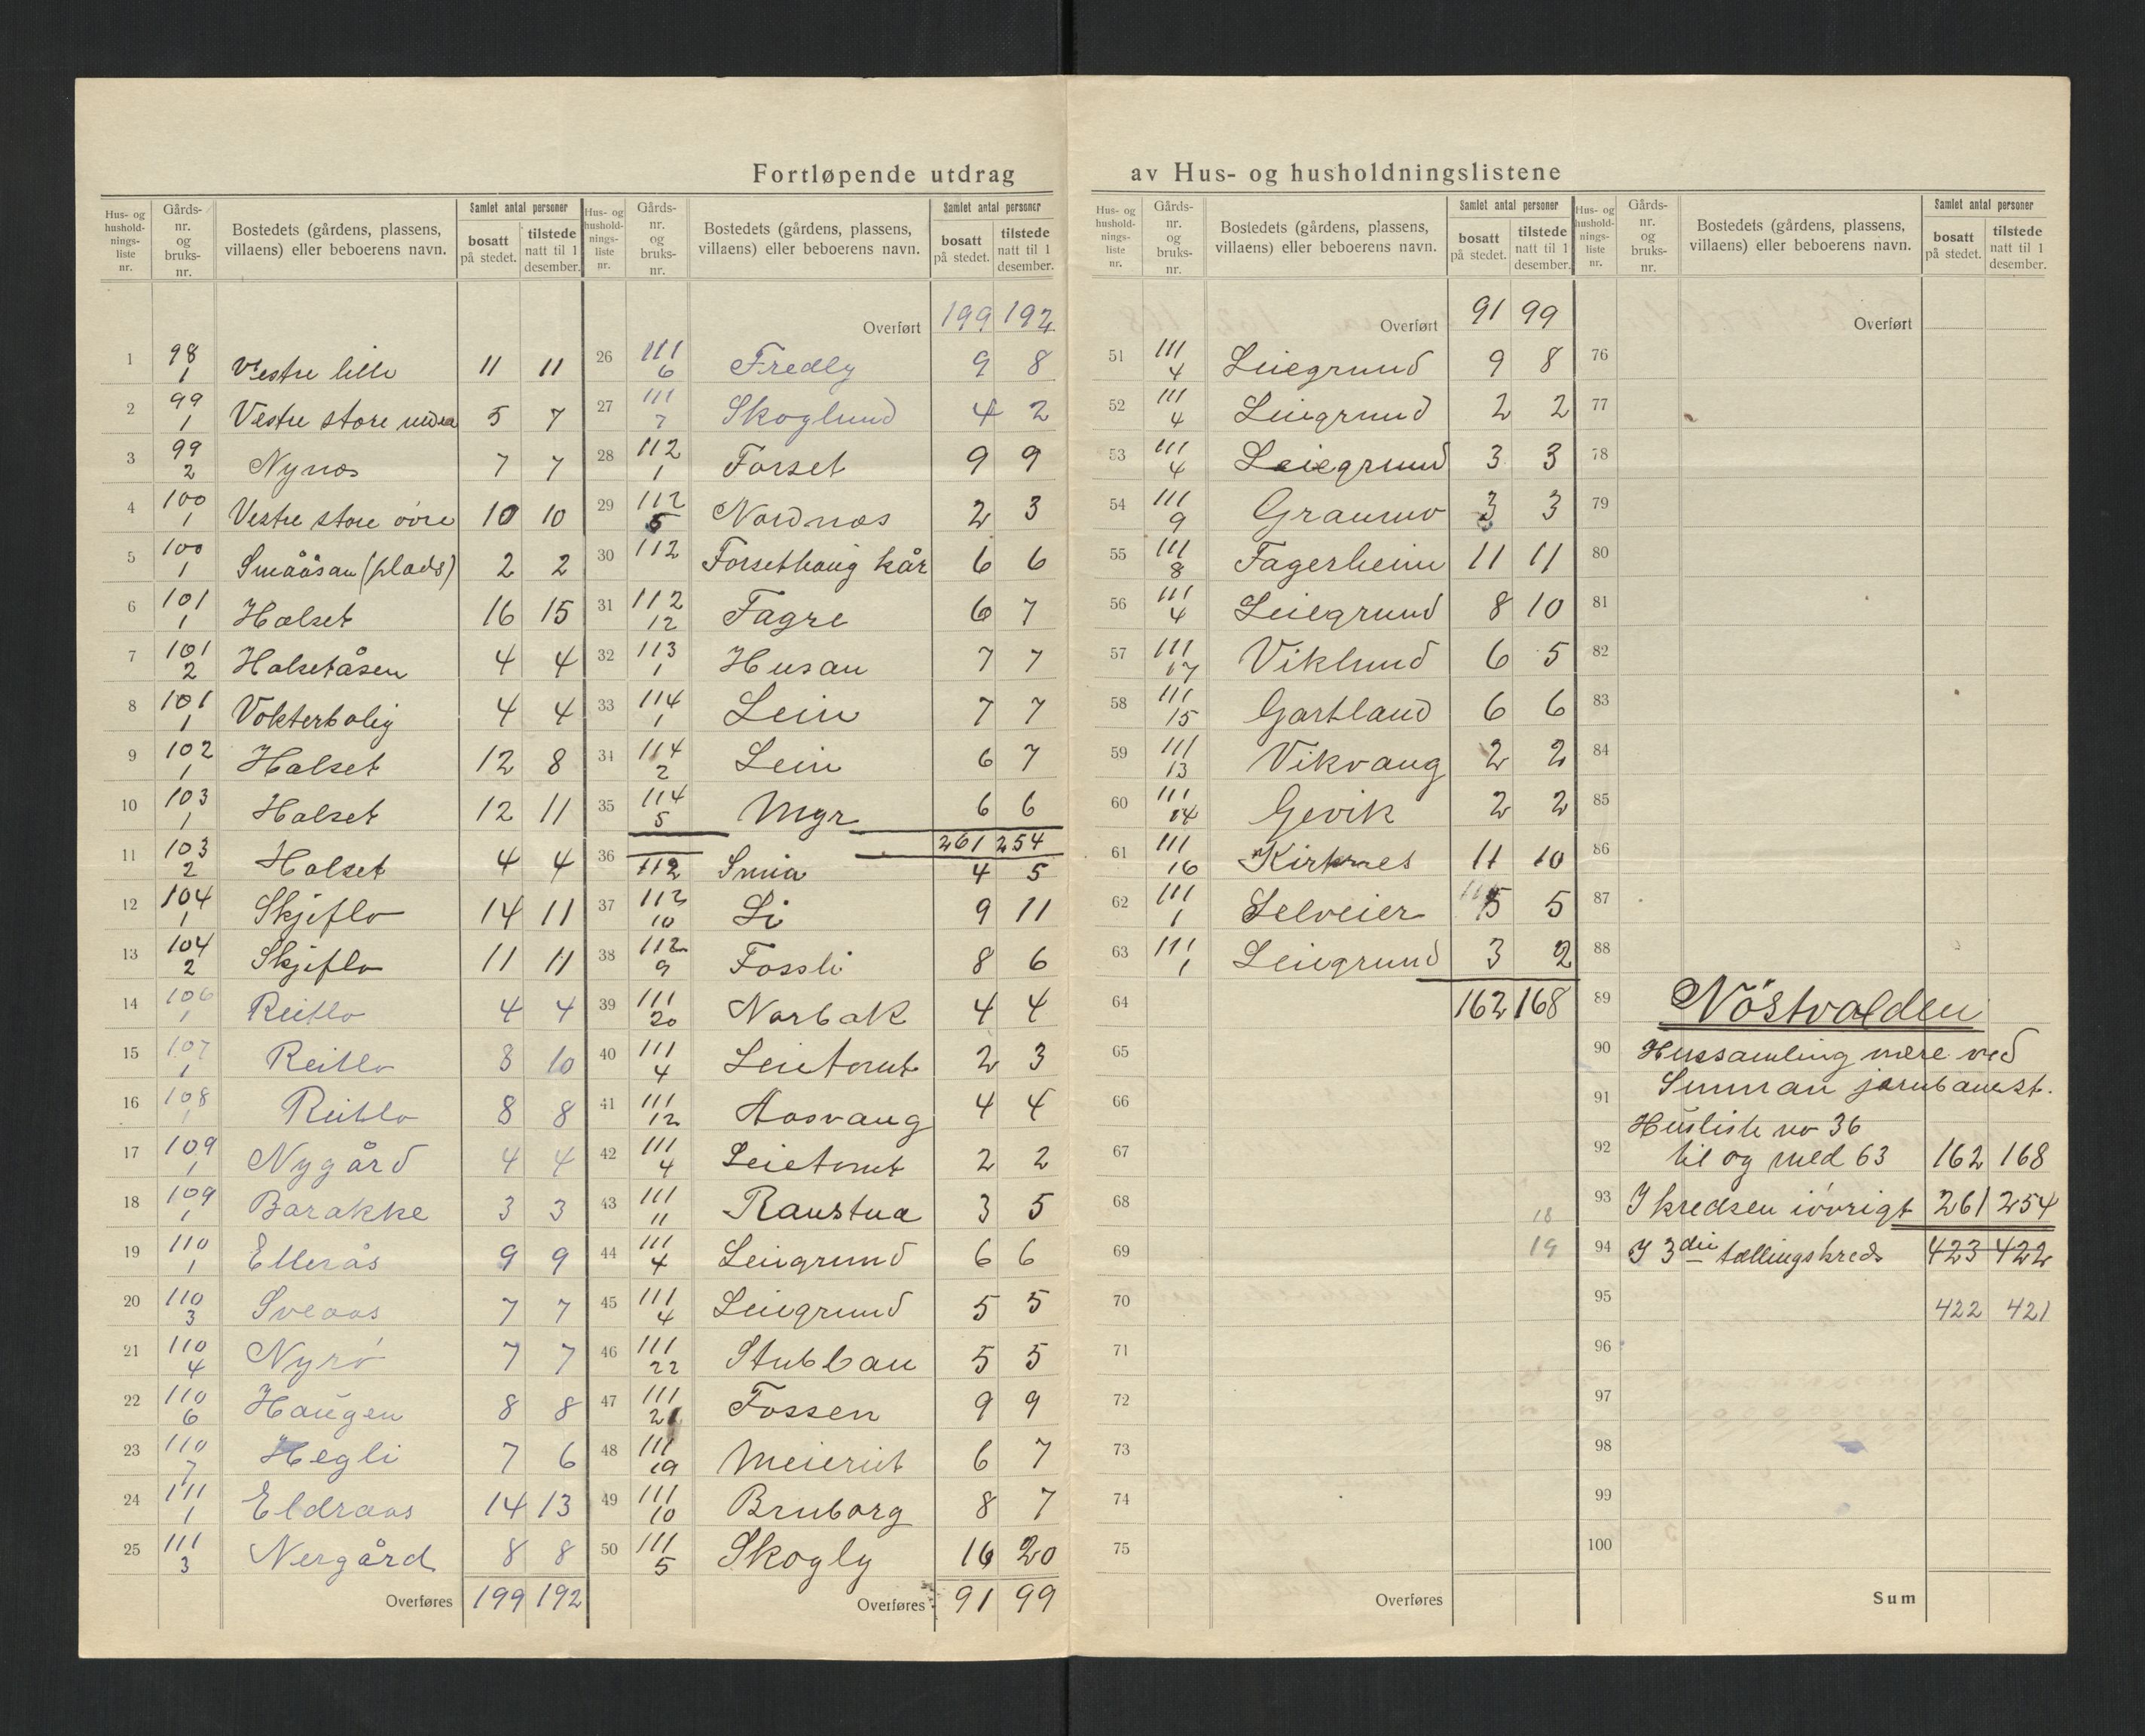 Fortløpende utdrag av Hus- og husholdningslistene
Hus- og husholdnings-liste nr. | Gårds-nr. og bruks-nr. | Bostedets (gårdens, plassens, villaens) eller beboerens navn. | Samlet antal personer | bosatt på stedet. | tilstede natt til 1 desember.
1 98/1 Vestre lille 11 11
2 99/1 Vestre store nedra 5 7
3 99/2 Nynæs 7 7
4 100/1 Vestre store övre 10 10
5 100/1 Smååsan (plads) 2 2
6 101/1 Halset 16 15
7 101/2 Halsetåsen 4 4
8 101/1 Vokterbolig 4 4
9 102/1 Halset 12 8
10 103/1 Halset 12 11
11 103/2 Halset 4 4
12 104/1 Skjeflo 14 11
13 104/2 Skjeflo 11 11
14 106/1 Reitlo 4 4
15 107/1 Reitlo 8 10
16 108/1 Reitlo 8 8
17 109/1 Nygård 4 4
18 109/1 Barakke 3 3
19 110/1 Ellerås 9 9
20 110/3 Sveaas 7 7
21 110/4 Nyrö 7 7
22 110/6 Haugen 8 8
23 110/7 Hegli 7 6
24 111/1 Eldraas 14 13
25 111/3 Nergård 8 8
Overføres 199 192
Hus- og husholdnings-liste nr. | Gårds-nr. og bruks-nr. | Bostedets (gårdens, plassens, villaens) eller beboerens navn. | Samlet antal personer | bosatt på stedet. | tilstede natt til 1 desember.
Overført 199 192
26 111/6 Fredly 9 8
27 111/7 Skoglund 4 2
28 112/1 Forset 9 9
29 112/5 Nordnæs 2 3
30 112 Forsethaug kår 6 6
31 112/12 Fagre 6 7
32 113/1 Husan 7 7
33 114/1 Lein 7 7
34 114/2 Lein 6 7
35 114/5 Myr 6 6
261 254
36 112 Smia 4 5
37 112/10 Li 9 11
38 112/9 Fossli 8 6
39 111/20 Norbak 4 4
40 111/4 Leietomt 2 3
41 111/12 Aasvang 4 4
42 111/4 Leietomt 2 2
43 111/11 Raustua 3 5
44 111/4 Leiegrund 6 6
45 111/4 Leiegrund 5 5
46 111/22 Stubban 5 5
47 111/21 Fossen 9 9
48 111/19 Meieriet 6 7
49 111/10 Bruborg 8 7
50 111/5 Skogly 16 20
Overføres 91 99
Hus- og husholdnings-liste nr. | Gårds-nr. og bruks-nr. | Bostedets (gårdens, plassens, villaens) eller beboerens navn. | Samlet antal personer | bosatt på stedet. | tilstede natt til 1 desember.
Overført 91 99
51 111/4 Leiegrund 9 8
52 111/4 Leiegrund 2 2
53 111/4 Leiegrund 3 3
54 111/9 Granmo 3 3
55 111/8 Fagerheim 11 11
56 111/4 Leiegrund 8 10
57 111/17 Viklund 6 5
58 111/15 Gartland 6 6
59 111/13 Vikvang 2 2
60 111/14 Gevik 2 2
61 111/16 Kirknes 11 10
62 111/1 Selveier 5 5
63 111/1 Leiegrund 3 2
64 162 168
65
66
67
68 18
69 19
70
71
72
73
74
75
Overføres
Hus- og husholdnings-liste nr. | Gårds-nr. og bruks-nr. | Bostedets (gårdens, plassens, villaens) eller beboerens navn. | Samlet antal personer | bosatt på stedet. | tilstede natt til 1 desember.
Overført
76
77
78
79
80
81
82
83
84
85
86
87
88
89 Nöstvalden
90 Hussamling nære ved
91 Sunnan jernbanest.
Husliste no 36
92 til og med 63 162 168
93 I kredsen iövrigt 261 254
94 I 3die tællingskreds 423 422
95 422 421
96
97
98
99
100
Sum